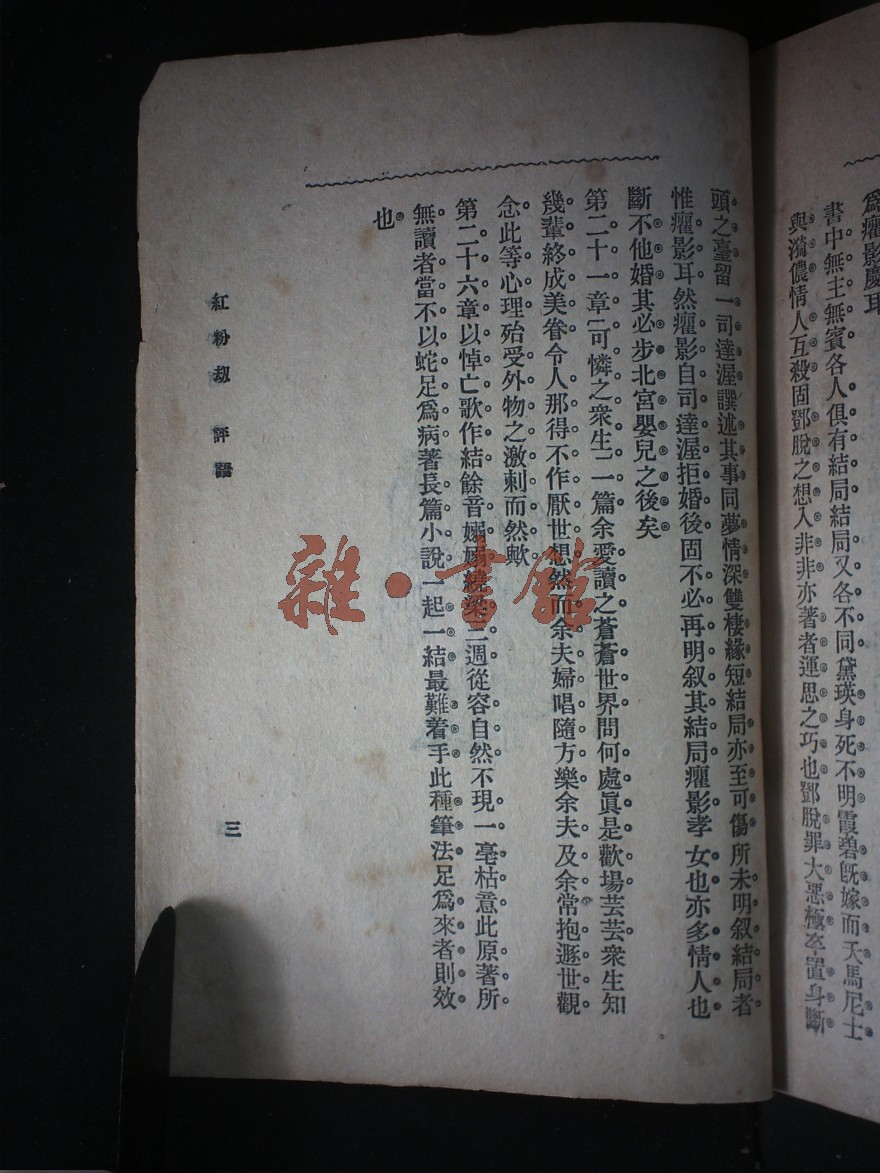 爲癯影慶耳
書中無主無賓各人俱有結局結局又各不同黛瑛身死不明霞碧旣嫁而天馬尼士
與漪儂情人互殺固鄧脫之想入非非亦著者運思之巧也鄧脫罪大惡極卒置身斷
頭之臺留一司達渥譔述其事同夢情深雙棲緣短結局亦至可傷所未明叙結局者
惟癯影耳然癯影自司達渥拒婚後固不必再明叙其結局癯影孝女也亦多情人也
斷不他婚其必步北宮嬰兒之後矣
第二十一章可憐之衆生一篇余愛讀之蒼蒼世界問何處眞是歡場芸芸衆生知
幾輩終成美眷令人那得不作厭世想然而余夫婦唱隨方樂余夫及余常抱遯世觀
念此等心理殆受外物之激刺而然歟
第二十六章以悼亡歌作結餘音嫋嫋繞梁三週從容自然不現一毫枯意此原著所
無讀者當不以蛇足爲病著長篇小說一起一結最難着手此種筆法足爲來者則效
也
紅粉刼 評語
三
雜·書館